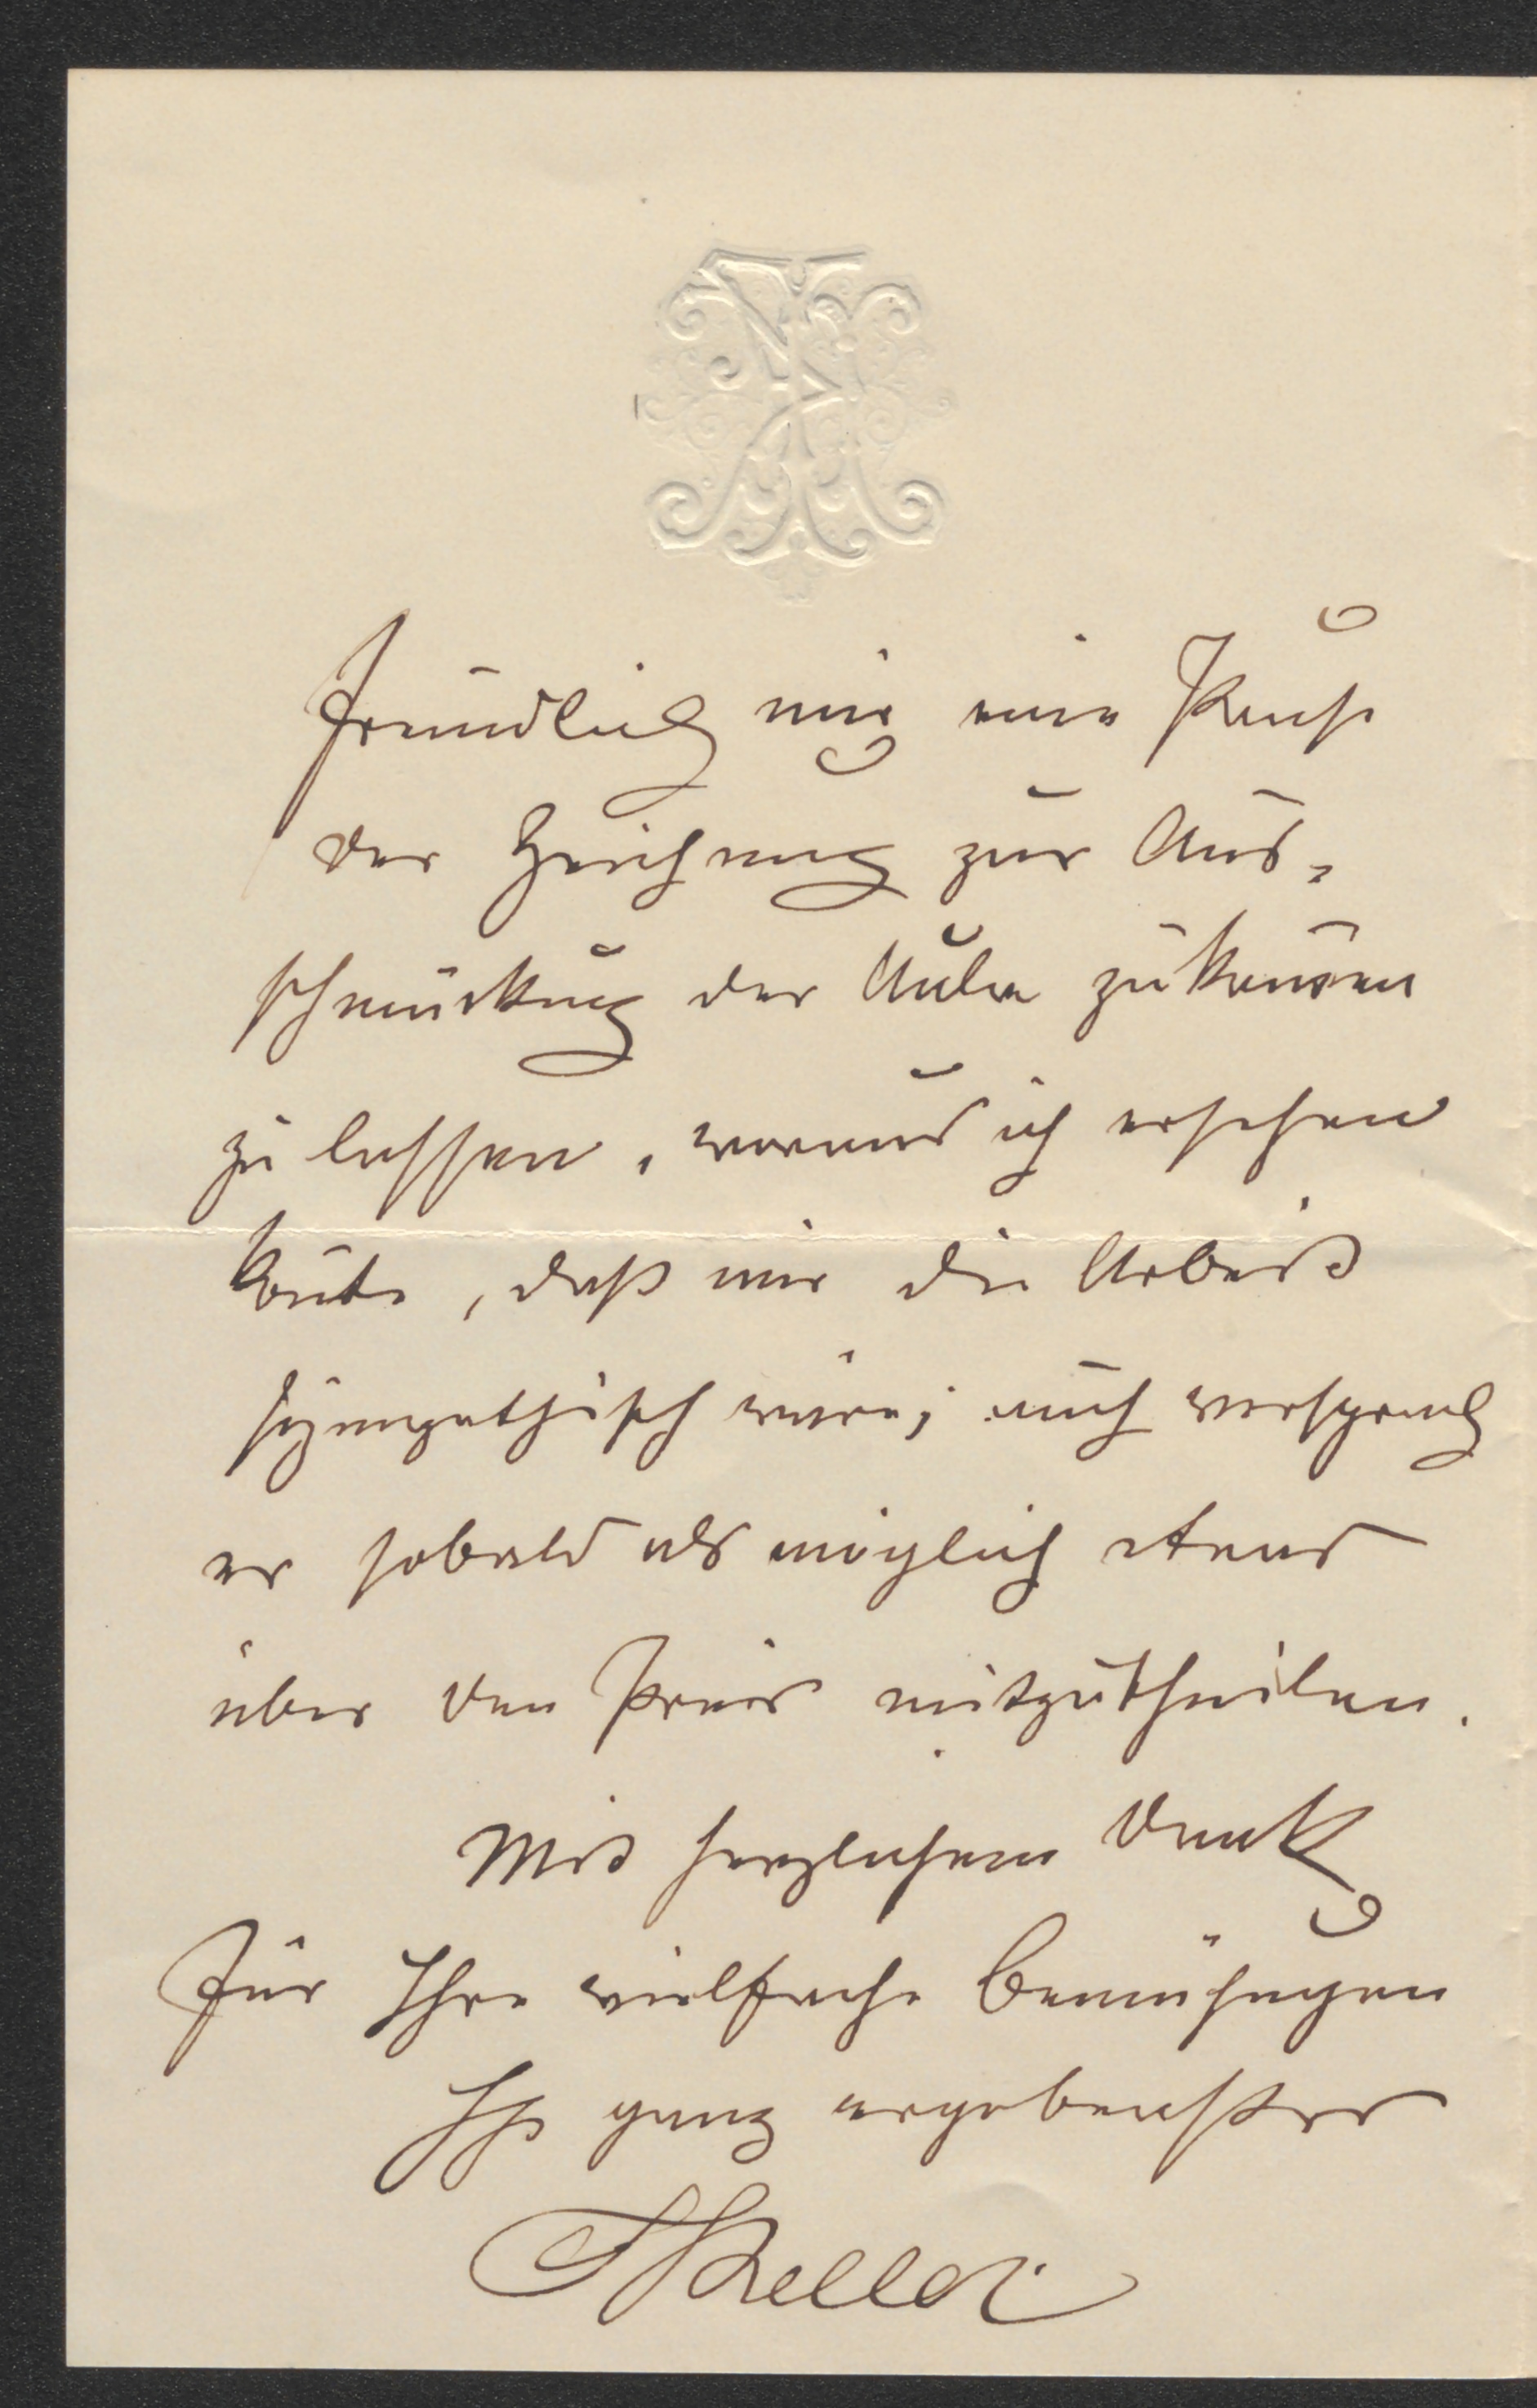 freundlich mir eine Pause
der Zeichnung zur Aus-
schmückung der Aula zukommen
zu lassen, woraus ich ersehen
könte, daß mir die Arbeit
sympathisch wäre; auch versprach
er sobald als möglich etwas
über den Preis mitzutheilen.
Mit herzlichem Dank
für Ihre vielfache Bemühungen
Ihr ganz ergebenster
FKeller